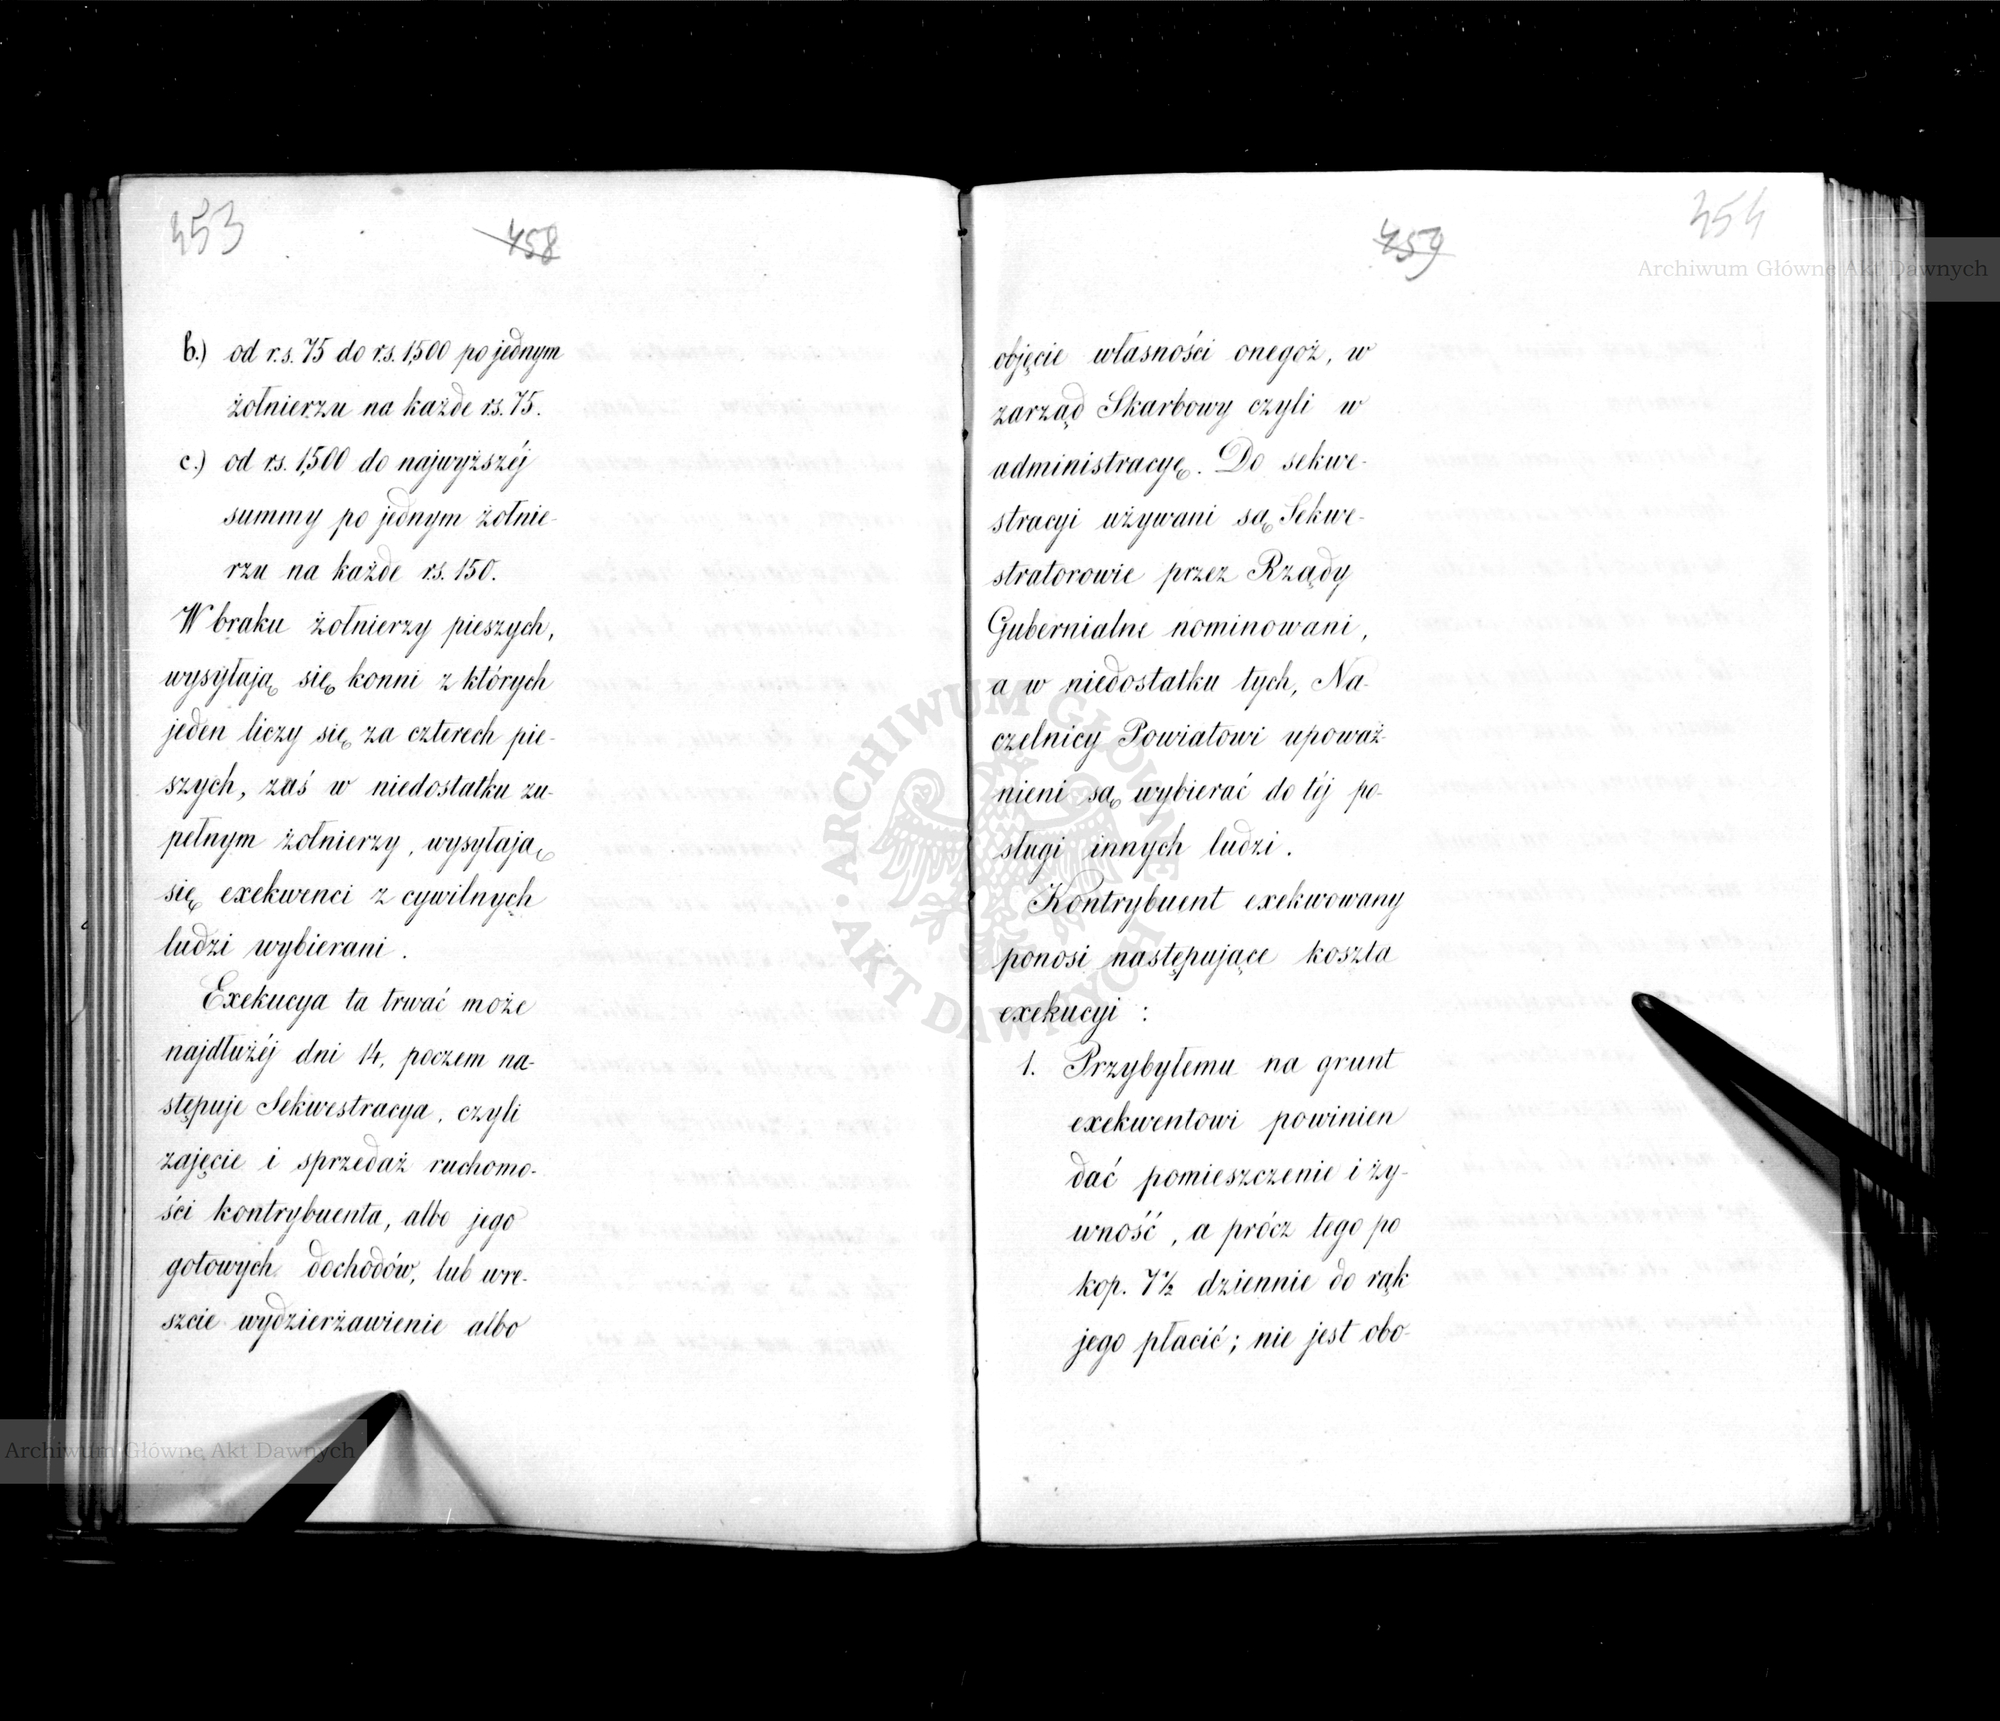 453
458
b.) od r.s. 75 do r.s. 1,500 po jednym
żołnierzu na każde rs. 75.
c.) od rs. 1,500 do najwyższéj
summy po jednym żołnie-
rzu na każde rs. 150.
W braku żołnierzy pieszych,
wysyłają się konni z których
jeden liczy się za czterech pie-
szych, zaś w niedostatku zu-
pełnym żołnierzy, wysyłają
się exekwenci z cywilnych
ludzi wybierani.
Exekucya ta trwać może
najdłużéj dni 14, poczem na-
stępuje Sekwestracya, czyli
zajęcie i sprzedaż ruchomo-
ści kontrybuenta, albo jego
gotowych dochodów, lub wre-
szcie wydzierżawienie albo
459
454
objęcie własności onegoż, w
zarząd Skarbowy czyli w
administracyę. Do sekwe-
stracyi używani są Sekwe-
stratorowie przez Rządy
Gubernialne nominowani,
a w niedostatku tych, Na-
czelnicy Powiatowi upoważ-
nieni są wybierać do téj po-
sługi innych ludzi.
Kontrybuent exekwowany
ponosi następujące koszta
exekucyi :
1. Przybyłemu na grunt
exekwentowi powinien
dać pomieszczenie i ży-
wność, a prócz tego po
kop. 7½ dziennie do rąk
jego płacić; nie jest obo-
Archiwum Główne Akt Dawnych
ARCHIWUM GŁÓWNE AKT DAWNYCH
Archiwum Główne Akt Dawnych